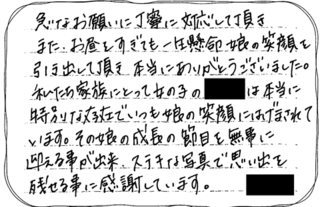 急なお願いに丁寧に対応して頂き
また、お昼をすぎても一生懸命、娘の笑顔を
引き出して頂き本当にありがとうございました。
私たち家族にとって女の子の は本当に
特別な存在でいつも娘の笑顔にはげまされて
います。その娘の成長の節目を無事に
迎える事が出来、ステキな写真で思い出を
残せる事に感謝しています。